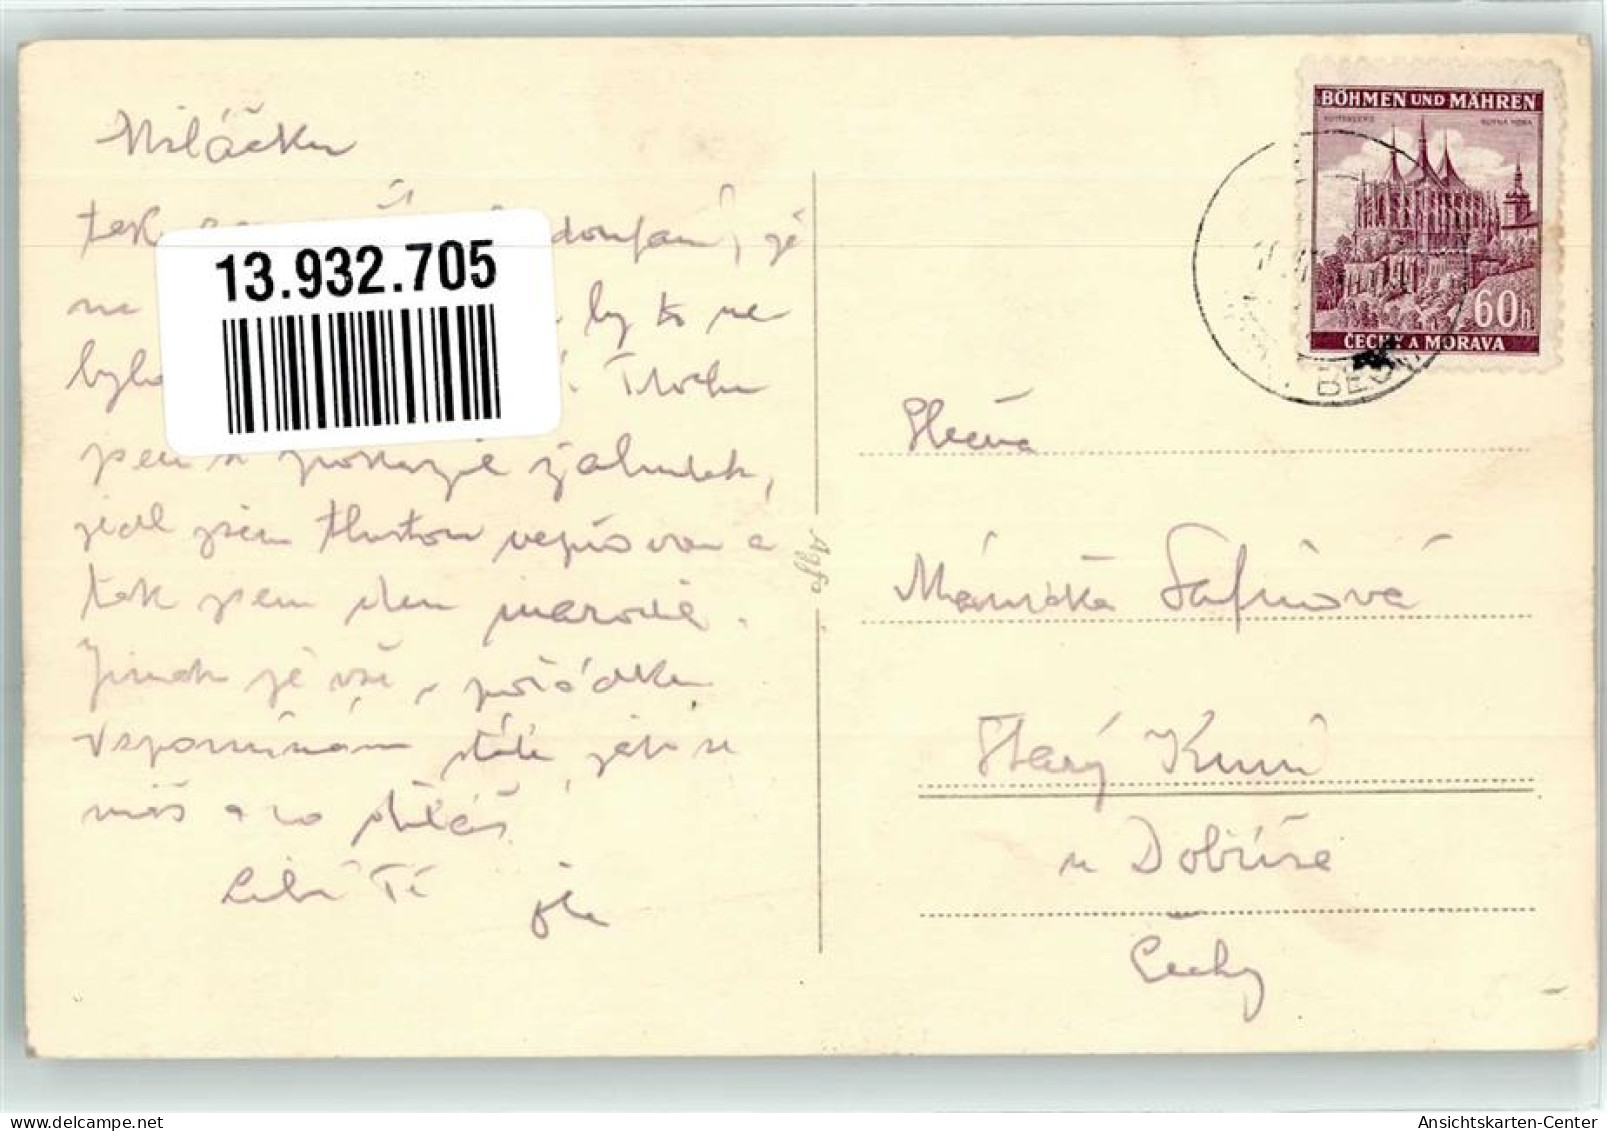 Miláčku
tak doufám, že
na by to ne
bylo Trochu
jsem si pokazil žaludek,
jedl jsem tlustou vepřovou a
tak jsem den marodil.
Jinak je vše v pořádku
Vzpomínám stále, jak se
máš a co děláš.
Líbá Tě
BÖHMEN UND MÄHREN
KUTTENBERG KUTNÁ HORA
60h
ČECHY A MORAVA
13.932.705
Agfa
Slečna
Mánička Šafrová
Starý Knín
u Dobříše
Čechy
AnsichtsKarten-Center